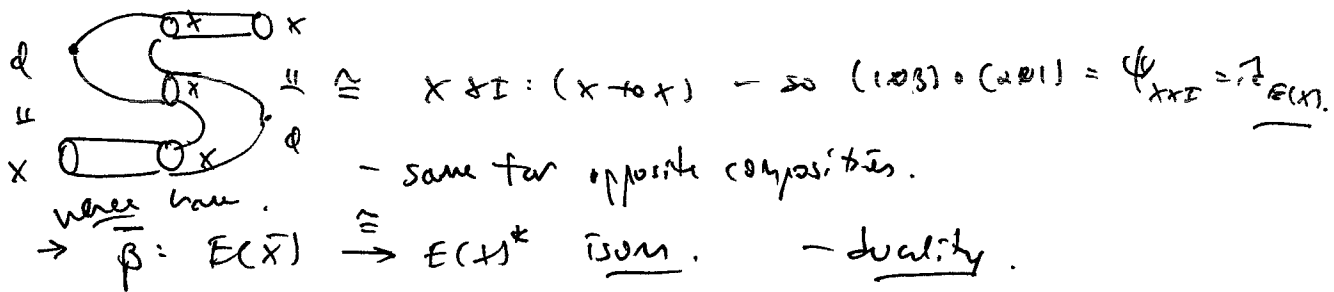 φ ⨿ X
X
X
X
⨿ φ
≅ X × I : (X → X) - so (1⊗β) ∘ (α⊗1) = ψ_{X×I} = 1_{E(X)}.
- same for opposite composites.
hence have.
→ β̄ : E(X̄) ≅→ E(X)* isom. - duality.